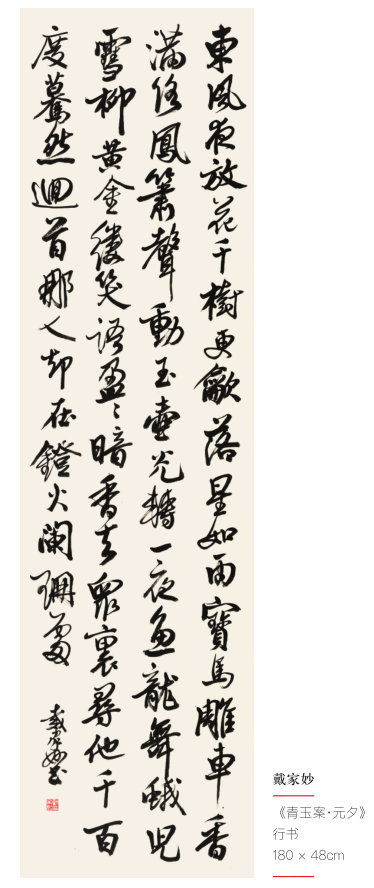 東風夜放花千樹更龡落星如雨寶馬雕車香
滿路鳳簫聲動玉壺光轉一夜魚龍舞蛾兒
雪柳黄金縷笑語盈〻暗香去眾裏尋他千百
度驀然迴首那人却在鐙火闌珊處
戴家妙書
戴家妙
《青玉案·元夕》
行书
180 × 48cm